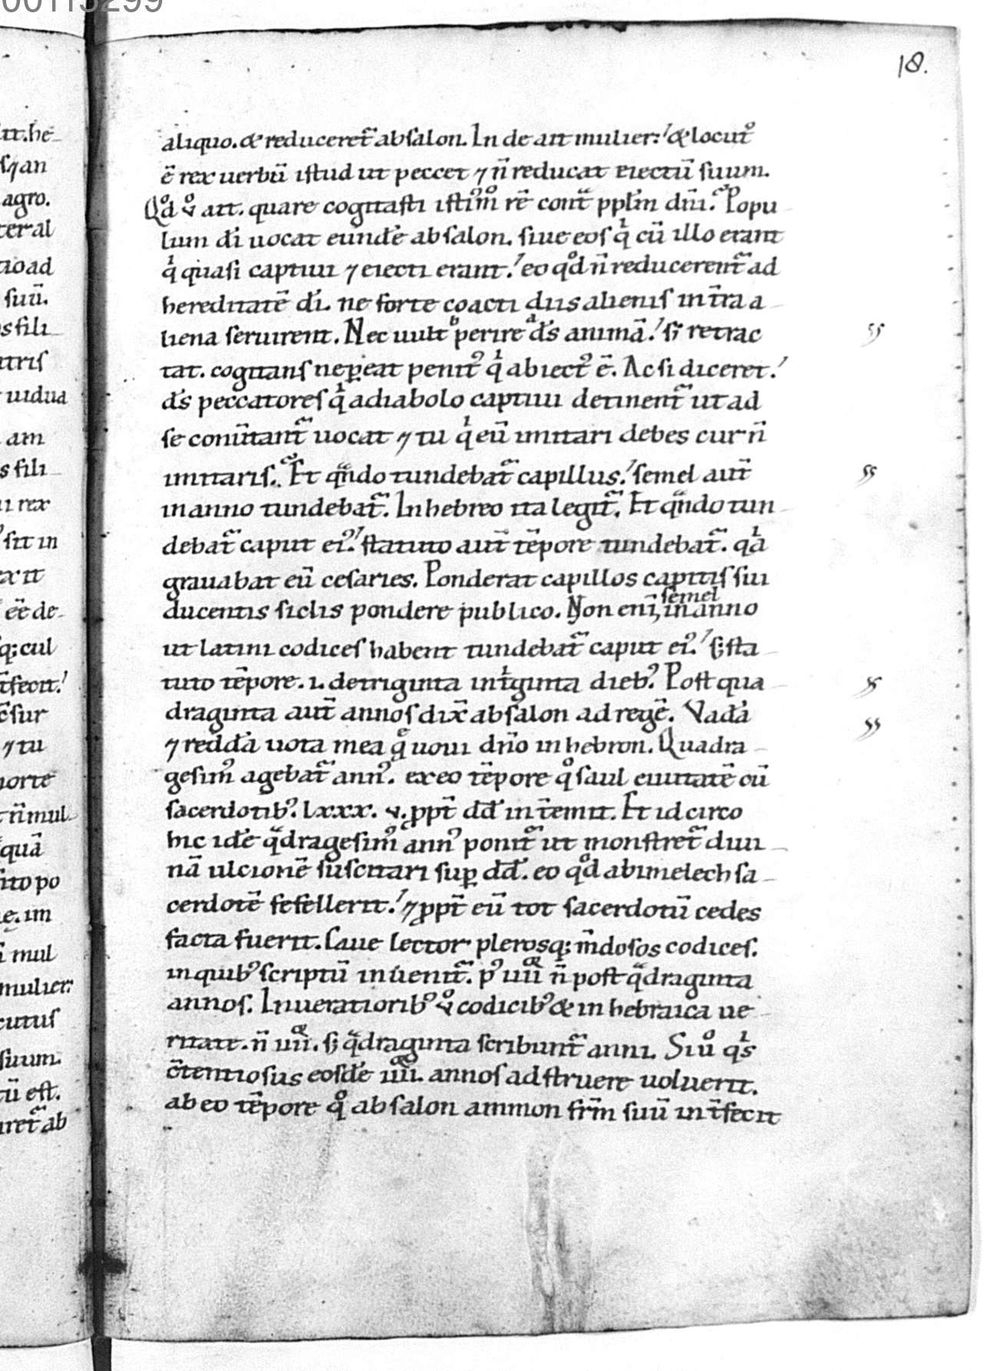 00113299
18.
aliquo. & reduceret᷑ absalon. Inde ait mulier. & locut᷒
ē rex uerbū istud ut peccet ⁊ n̄ reducat eiectū suum.
Qd̊ ů ait. quare cogitasti istim̊ rē cont̄ pplm̄ dn̄i. Popu
lum dī uocat eundē absalon. siue eos qͥ cū illo erant
qͥ quasi captiui ⁊ eiecti erant. eo qd̊ n̄ reducerent᷑ ad
hereditatē dī. ne forte coacti diis alienis in t̄ra a
liena seruirent. Nec uult perire ds̄ animā. sꝫ retrac
tat. cogitans ne ꝑeat penit᷒ qͥ abiect᷒ ē. Ac si diceret.
ds̄ peccatores qͥ a diabolo captiui detinent᷑ ut ad
se conūtant᷑ uocat ⁊ tu qͥ eū imitari debes cur n̄
imitaris. Et qn̄do tundebat᷑ capillus. semel aut̄
in anno tundebat᷑. In hebreo ita legit᷑. Et qn̄do tun
debat᷑ caput ei᷒. statuto aut̄ tēpore tundebat᷑. qͥa
grauabat eū cesaries. Ponderat capillos capitis sui
ducentis siclis pondere publico. Non enī, semel in anno
ut latini codices habent tundebat᷑ caput ei᷒. sꝫ sta
tuto tēpore. i. de triginta in tͥginta dieb᷒. Post qua
draginta aut̄ annos dix̄ absalon ad regē. Vadā
⁊ reddā uota mea q̄ uoui dn̄o in hebron. Quadra
gesim᷒ agebat᷑ ann᷒. ex eo tēpore qͦ saul ciuitatē cū
sacerdotib᷒. lxxx. v. ꝓpt̄ dd̄ int̄emit. Et id circo
hic idē qᷓdragesim᷒ ann᷒ ponit᷑ ut monstret᷑ diui
nā ulcionē suscitari suꝑ dd̄. eo qd̊ abimelech sa
cerdotē fefellerit. ⁊ ꝓpt̄ eū tot sacerdotū cedes
facta fuerit. Caue lector plerosq; m̄dosos codices.
in quib᷒ scriptū inuenit᷑. p᷒ iiiiᵒʳ n̄ post qᷓdraginta
annos. In ueratiorib᷒ ů codicib᷒ & in hebraica ue
ritate. n̄ iiiiᵒʳ. sꝫ qᷓdraginta scribunt᷑ anni. Si ů qͥs
c̄tentiosus eosdē iiiiᵒʳ. annos adstruere uoluerit.
ab eo tēpore qͦ absalon ammon frm̄ suū int̄fecit